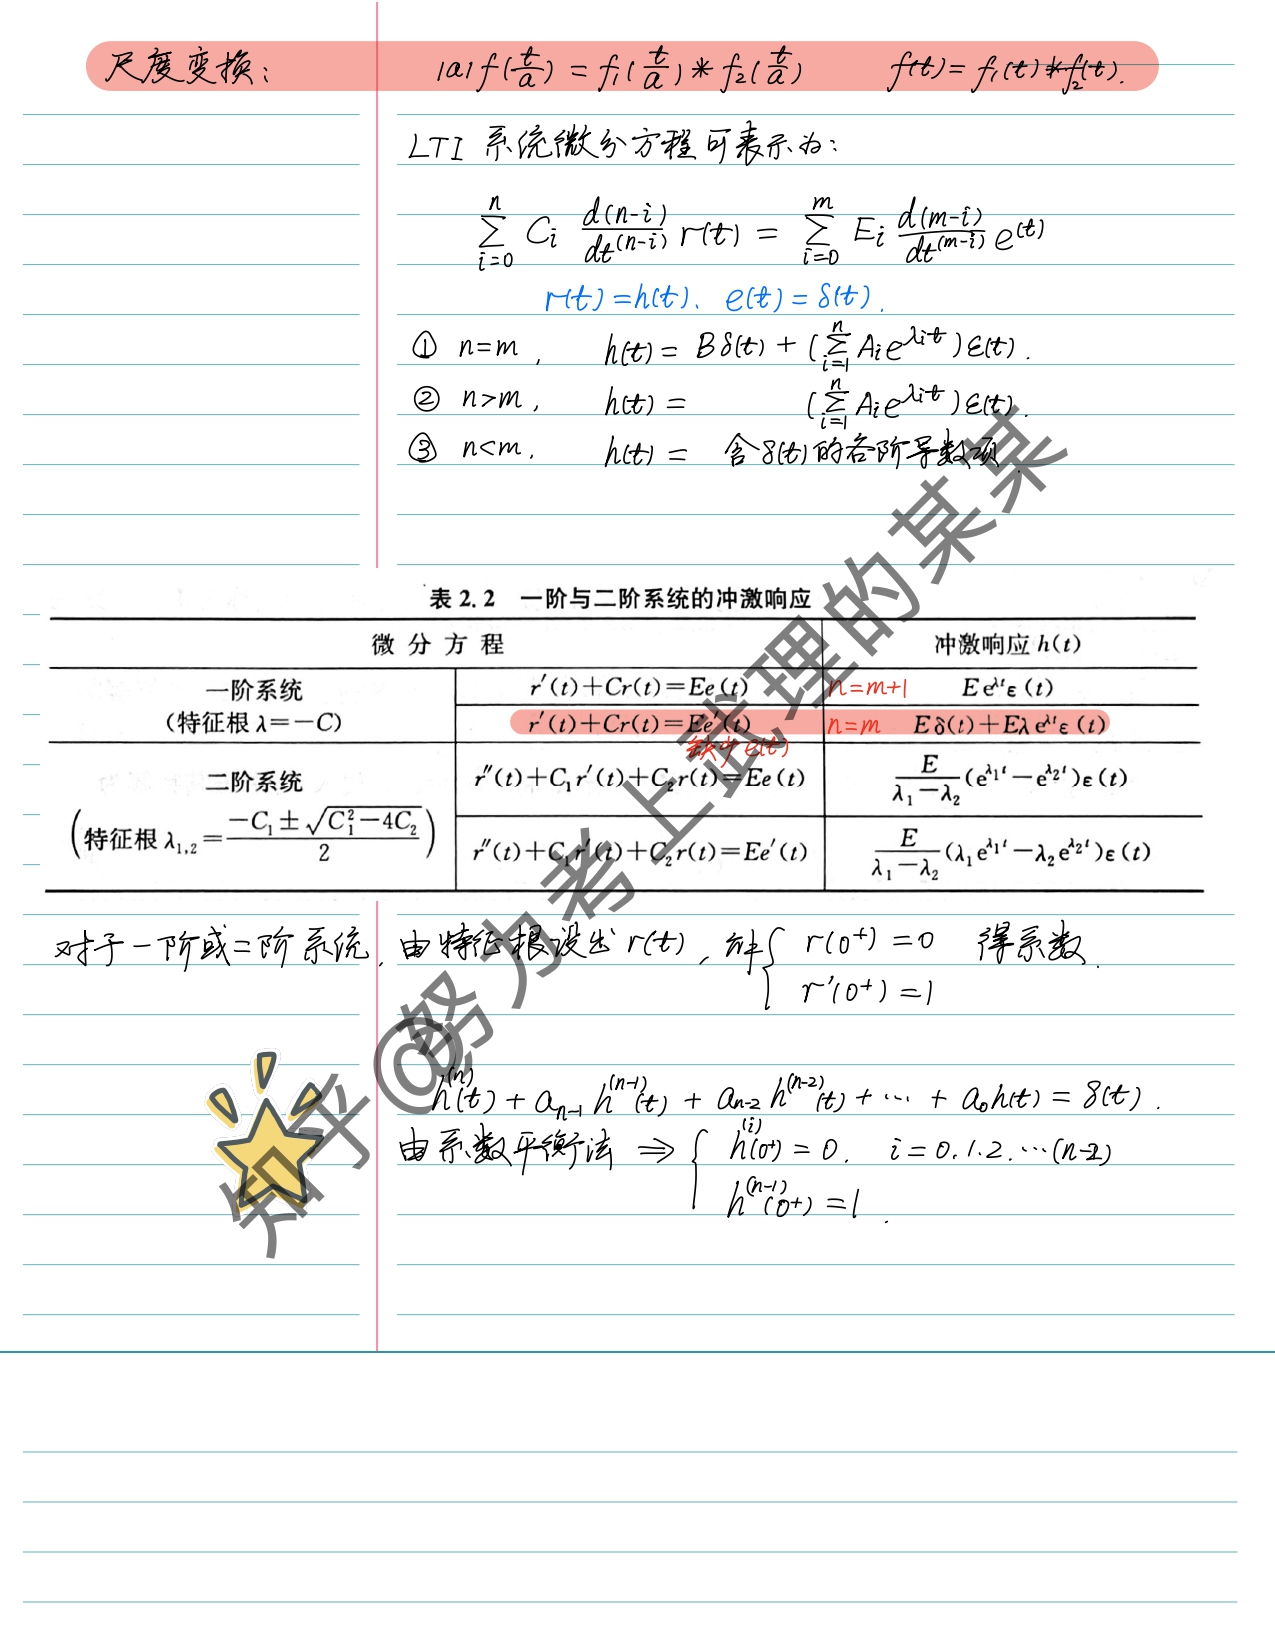 尺度变换: |a| f(t/a) = f₁(t/a) * f₂(t/a)    f(t) = f₁(t) * f₂(t).
LTI 系统微分方程可表示为:
∑_{i=0}^{n} C_i d(n-i)/dt^(n-i) r(t) = ∑_{i=0}^{m} E_i d(m-i)/dt^(m-i) e(t)
r(t)=h(t). e(t)=δ(t).
① n=m, h(t)= Bδ(t) + (∑_{i=1}^{n} A_i e^{λ_i t}) ε(t).
② n>m, h(t)= (∑_{i=1}^{n} A_i e^{λ_i t}) ε(t).
③ n<m. h(t)= 含δ(t)的各阶导数项.
表 2.2 一阶与二阶系统的冲激响应
微 分 方 程    冲激响应 h(t)
一阶系统
(特征根 λ=-C)
r′(t)+Cr(t)=Ee(t)    n=m+1    Ee^{λt}ε(t)
r′(t)+Cr(t)=Ee′(t)    n=m    Eδ(t)+Eλe^{λt}ε(t)
缺少e(t)
二阶系统
(特征根 λ_{1,2}=(-C₁±√(C₁²-4C₂))/2)
r″(t)+C₁r′(t)+C₂r(t)=Ee(t)    E/(λ₁-λ₂)(e^{λ₁t}-e^{λ₂t})ε(t)
r″(t)+C₁r′(t)+C₂r(t)=Ee′(t)    E/(λ₁-λ₂)(λ₁e^{λ₁t}-λ₂e^{λ₂t})ε(t)
对于一阶或二阶系统, 由特征根设出 r(t), 解{ r(0⁺)=0 得系数.
r′(0⁺)=1
h^(n)(t) + a_{n-1} h^(n-1)(t) + a_{n-2} h^(n-2)(t) + ⋯ + a₀h(t) = δ(t).
由系数平衡法 ⇒ { h^(i)(0⁺) = 0. i=0.1.2.⋯(n-2)
h^(n-1)(0⁺) = 1.
知乎@努力考上武理的某某